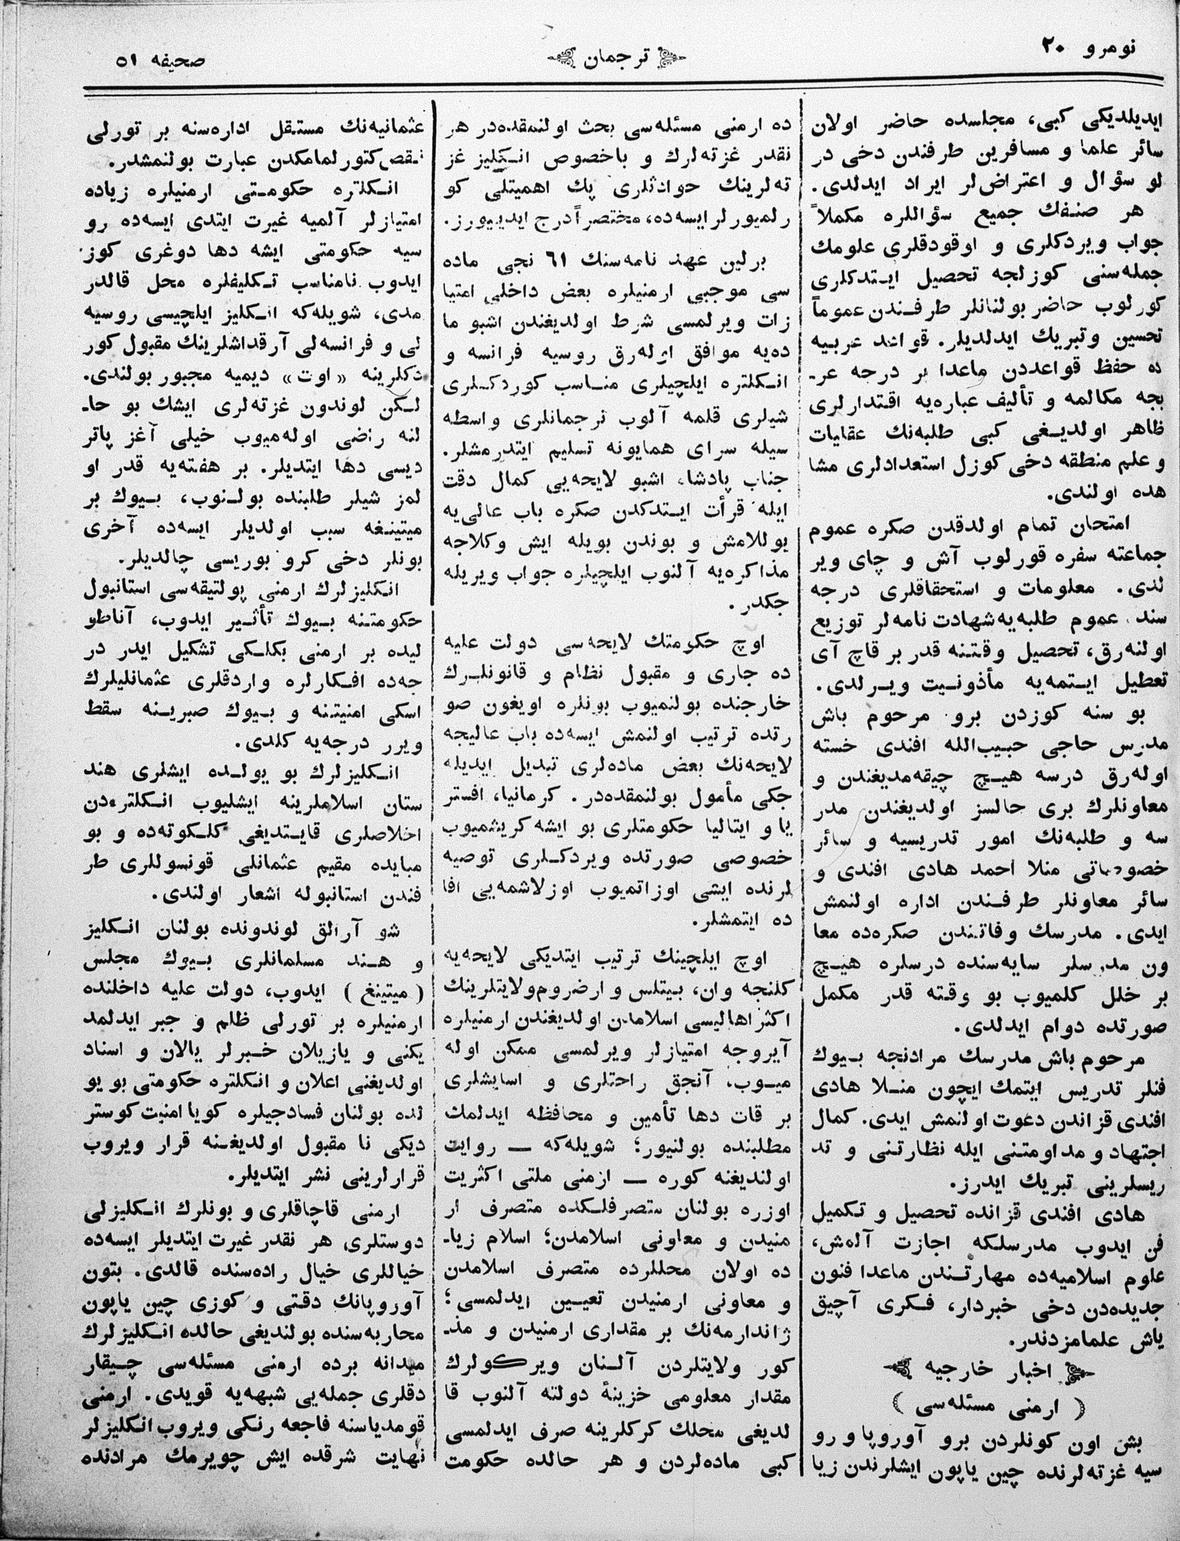 نومرو ٢٠
ترجمان
صحيفه ٥١
ايديلديكی كبی، مجلسده حاضر اولان
سائر علما و مسافرين طرفندن دخی در
لو سؤال و اعتراض‌لر ايراد ايدلدی.
هر صنفك جميع سؤاللره مكملاً
جواب ويردكلری و اوقودقلری علومك
جمله‌سنی كوزلجه تحصيل ايتدكلری
كورلوب حاضر بولنانلر طرفندن عموماً
تحسين وتبريك ايدلديلر. قواعد عربيه
ده حفظ قواعددن ماعدا بر درجه عر‍
بجه مكالمه و تأليف عباره‌يه اقتدارلری
ظاهر اولديغی كبی طلبه‌نك عقايات
و علم منطقه دخی كوزل استعدادلری مشا
هده اولندی.
امتحان تمام اولدقدن صكره عموم
جماعته سفره قورلوب آش و چای وير
لدی. معلومات و استحقاقلری درجه
سنده عموم طلبه‌يه شهادت نامه‌لر توزيع
اولنه‌رق، تحصيل وقتنه قدر بر قاچ آی
تعطيل ايتمه‌يه مأذونيت ويرلدی.
بو سنه كوزدن برو مرحوم باش
مدرس حاجی حبيب‌الله افندی خسته
اوله‌رق درسه هيچ چيقه‌مديغندن و
معاونلرك بری حالسز اولديغندن مدر
سه و طلبه‌نك امور تدريسيه و سائر
خصوصاتی منلا احمد هادی افندی و
سائر معاونلر طرفندن اداره اولنمش
ايدی. مدرسك وفاتندن صكره‌ده معا
ون مدرسلر سايه‌سنده درسلره هيچ
بر خلل كلميوب بو وقته قدر مكمل
صورتده دوام ايدلدی.
مرحوم باش مدرسك مرادنجه بيوك
فنلر تدريس ايتمك ايچون منلا هادی
افندی قزاندن دعوت اولنمش ايدی. كمال
اجتهاد و مداومتنی ايله نظارتنی و تد
ريسلرينی تبريك ايدرز.
هادی افندی قزانده تحصيل و تكميل
فن ايدوب مدرسلكه اجازت آلمش،
علوم اسلاميه‌ده مهارتندن ماعدا فنون
جديده‌دن دخی خبردار، فكری آچيق
ياش علمامزدندر.
اخبار خارجيه
( ارمنی مسئله‌سی )
بش اون كونلردن برو آوروپا و رو
سيه غزته‌لرنده چين ياپون ايشلرندن زيا
ده ارمنی مسئله‌سی بحث اولنمقده‌در هر
نقدر غزته‌لرك و باخصوص انكليز غز
ته‌لرينك حوادثلری پك اهميتلی كو
رلميورلر ايسه‌ده، مختصراً درج ايدييورز.
برلين عهد نامه‌سنك ٦١ نجی ماده
سی موجبی ارمنيلره بعض داخلی امتيا
زات ويرلمسی شرط اولديغندن اشبو ما
ده‌يه موافق اوله‌رق روسيه فرانسه و
انكلتره ايلچيلری مناسب كوردكلری
شيلری قلمه آلوب ترجمانلری واسطه
سيله سرای همايونه تسليم ايتدرمشلر.
جناب پادشاه اشبو لايحه‌يی كمال دقت
ايله قرأت ايتدكدن صكره باب عالی‌يه
يوللامش و بوندن بويله ايش وكلاجه
مذاكره‌يه آلنوب ايلچيلره جواب ويريله
جكدر.
اوچ حكومتك لايحه‌سی دولت عليه
ده جاری و مقبول نظام و قانونلرك
خارجنده بولنميوب بونلره اويغون صو
رتده ترتيب اولنمش ايسه‌ده باب عاليجه
لايحه‌نك بعض ماده‌لری تبديل ايديله
جكی مأمول بولنمقده‌در. كرمانيا، افستر
يا و ايتاليا حكومتلری بو ايشه كريشميوب
خصوصی صورتده ويردكلری توصيه
لرنده ايشی اوزاتميوب اوزلاشمه‌يی افا
ده ايتمشلر.
اوچ ايلچينك ترتيب ايتديكی لايحه‌يه
كلنجه وان، بيتلس و ارضروم ولايتلرينك
اكثر اهاليسی اسلامدن اولديغندن ارمنيلره
آيروجه امتيازلر ويرلمسی ممكن اوله
ميوب، آنجق راحتلری و اسايشلری
بر قات دها تأمين و محافظه ايدلمك
مطلبنده بولنيور؛ شويله‌كه — روايت
اولنديغنه كوره — ازمنی ملتی اكثريت
اوزره بولنان متصرفلكده متصرف ار
منيدن و معاونی اسلامدن؛ اسلام زيا‍
ده اولان محللرده متصرف اسلامدن
و معاونی ارمنيدن تعيين ايدلمسی؛
ژاندارمه‌نك بر مقداری ارمنيدن و مذ‍
كور ولايتلردن آلنان ويركولرك
مقدار معلومی خزينهٔ دولته آلنوب قا
لديغی محلك كركلرينه صرف ايدلمسی
كبی ماده‌لردن و هر حالده حكومت
عثمانيه‌نك مستقل اداره‌سنه بر تورلی
نقص كتورلمامكدن عبارت بولنمشدر.
انكلتره حكومتی ارمنيلره زياده
امتيازلر آلميه غيرت ايتدی ايسه‌ده رو
سيه حكومتی ايشه دها دوغری كوز
ايدوب نامناسب تكليفلره محل قالدر
مدی، شويله‌كه انكليز ايلچيسی روسيه
لی و فرانسه‌لی آرقداشلرينك مقبول كور
دكلرينه «اوت» ديميه مجبور بولندی.
لكن لوندون غزته‌لری ايشك بو حا‍
لنه راضی اوله‌ميوب خيلی آغز پاتر
ديسی دها ايتديلر. بر هفته‌يه قدر او
لمز شيلر طلبنده بولنوب، بيوك بر
ميتينغه سبب اولديلر ايسه‌ده آخری
بونلر دخی كرو بوريسی چالديلر.
انكليزلرك ارمنی پولتيقه‌سی استانبول
حكومتنه بيوك تأثير ايدوب، آناطو
ليده بر ارمنی بكلكی تشكيل ايدر در
جه‌ده افكارلره واردقلری عثمانليلرك
اسكی امنيتنه و بيوك صبرينه سقط
ويرر درجه‌يه كلدی.
انكليزلرك بو يولده ايشلری هند
ستان اسلاملرينه ايشليوب انكلتره‌دن
اخلاصلری قايتديغی كلكوته‌ده و بو
مبايده مقيم عثمانلی قونسوللری طر
فندن استانبوله اشعار اولندی.
شو آرالق لوندونده بولنان انكليز
و هند مسلمانلری بيوك مجلس
( ميتينغ ) ايدوب، دولت عليه داخلنده
ارمنيلره بر تورلی ظلم و جبر ايدلمد
يكنی و يازيلان خبرلر يالان و اسناد
اولديغنی اعلان و انكلتره حكومتی بو يو
لده بولنان فسادجيلره كويا امنيت كوستر
ديكی نا مقبول اولديغنه قرار ويروب
قرارلرينی نشر ايتديلر.
ارمنی قاچاقلری و بونلرك انكليزلی
دوستلری هر نقدر غيرت ايتديلر ايسه‌ده
خياللری خيال راده‌سنده قالدی. بتون
آوروپانك دقتی و كوزی چين ياپون
محاربه‌سنده بولنديغی حالده انكليزلرك
ميدانه برده ارمنی مسئله‌سی چيقار
دقلری جمله‌يی شبهه‌يه قويدی. ارمنی
قومدياسنه فاجعه رنكی ويروب انكليزلر
نهايت شرقده ايش چويرمك مرادنده